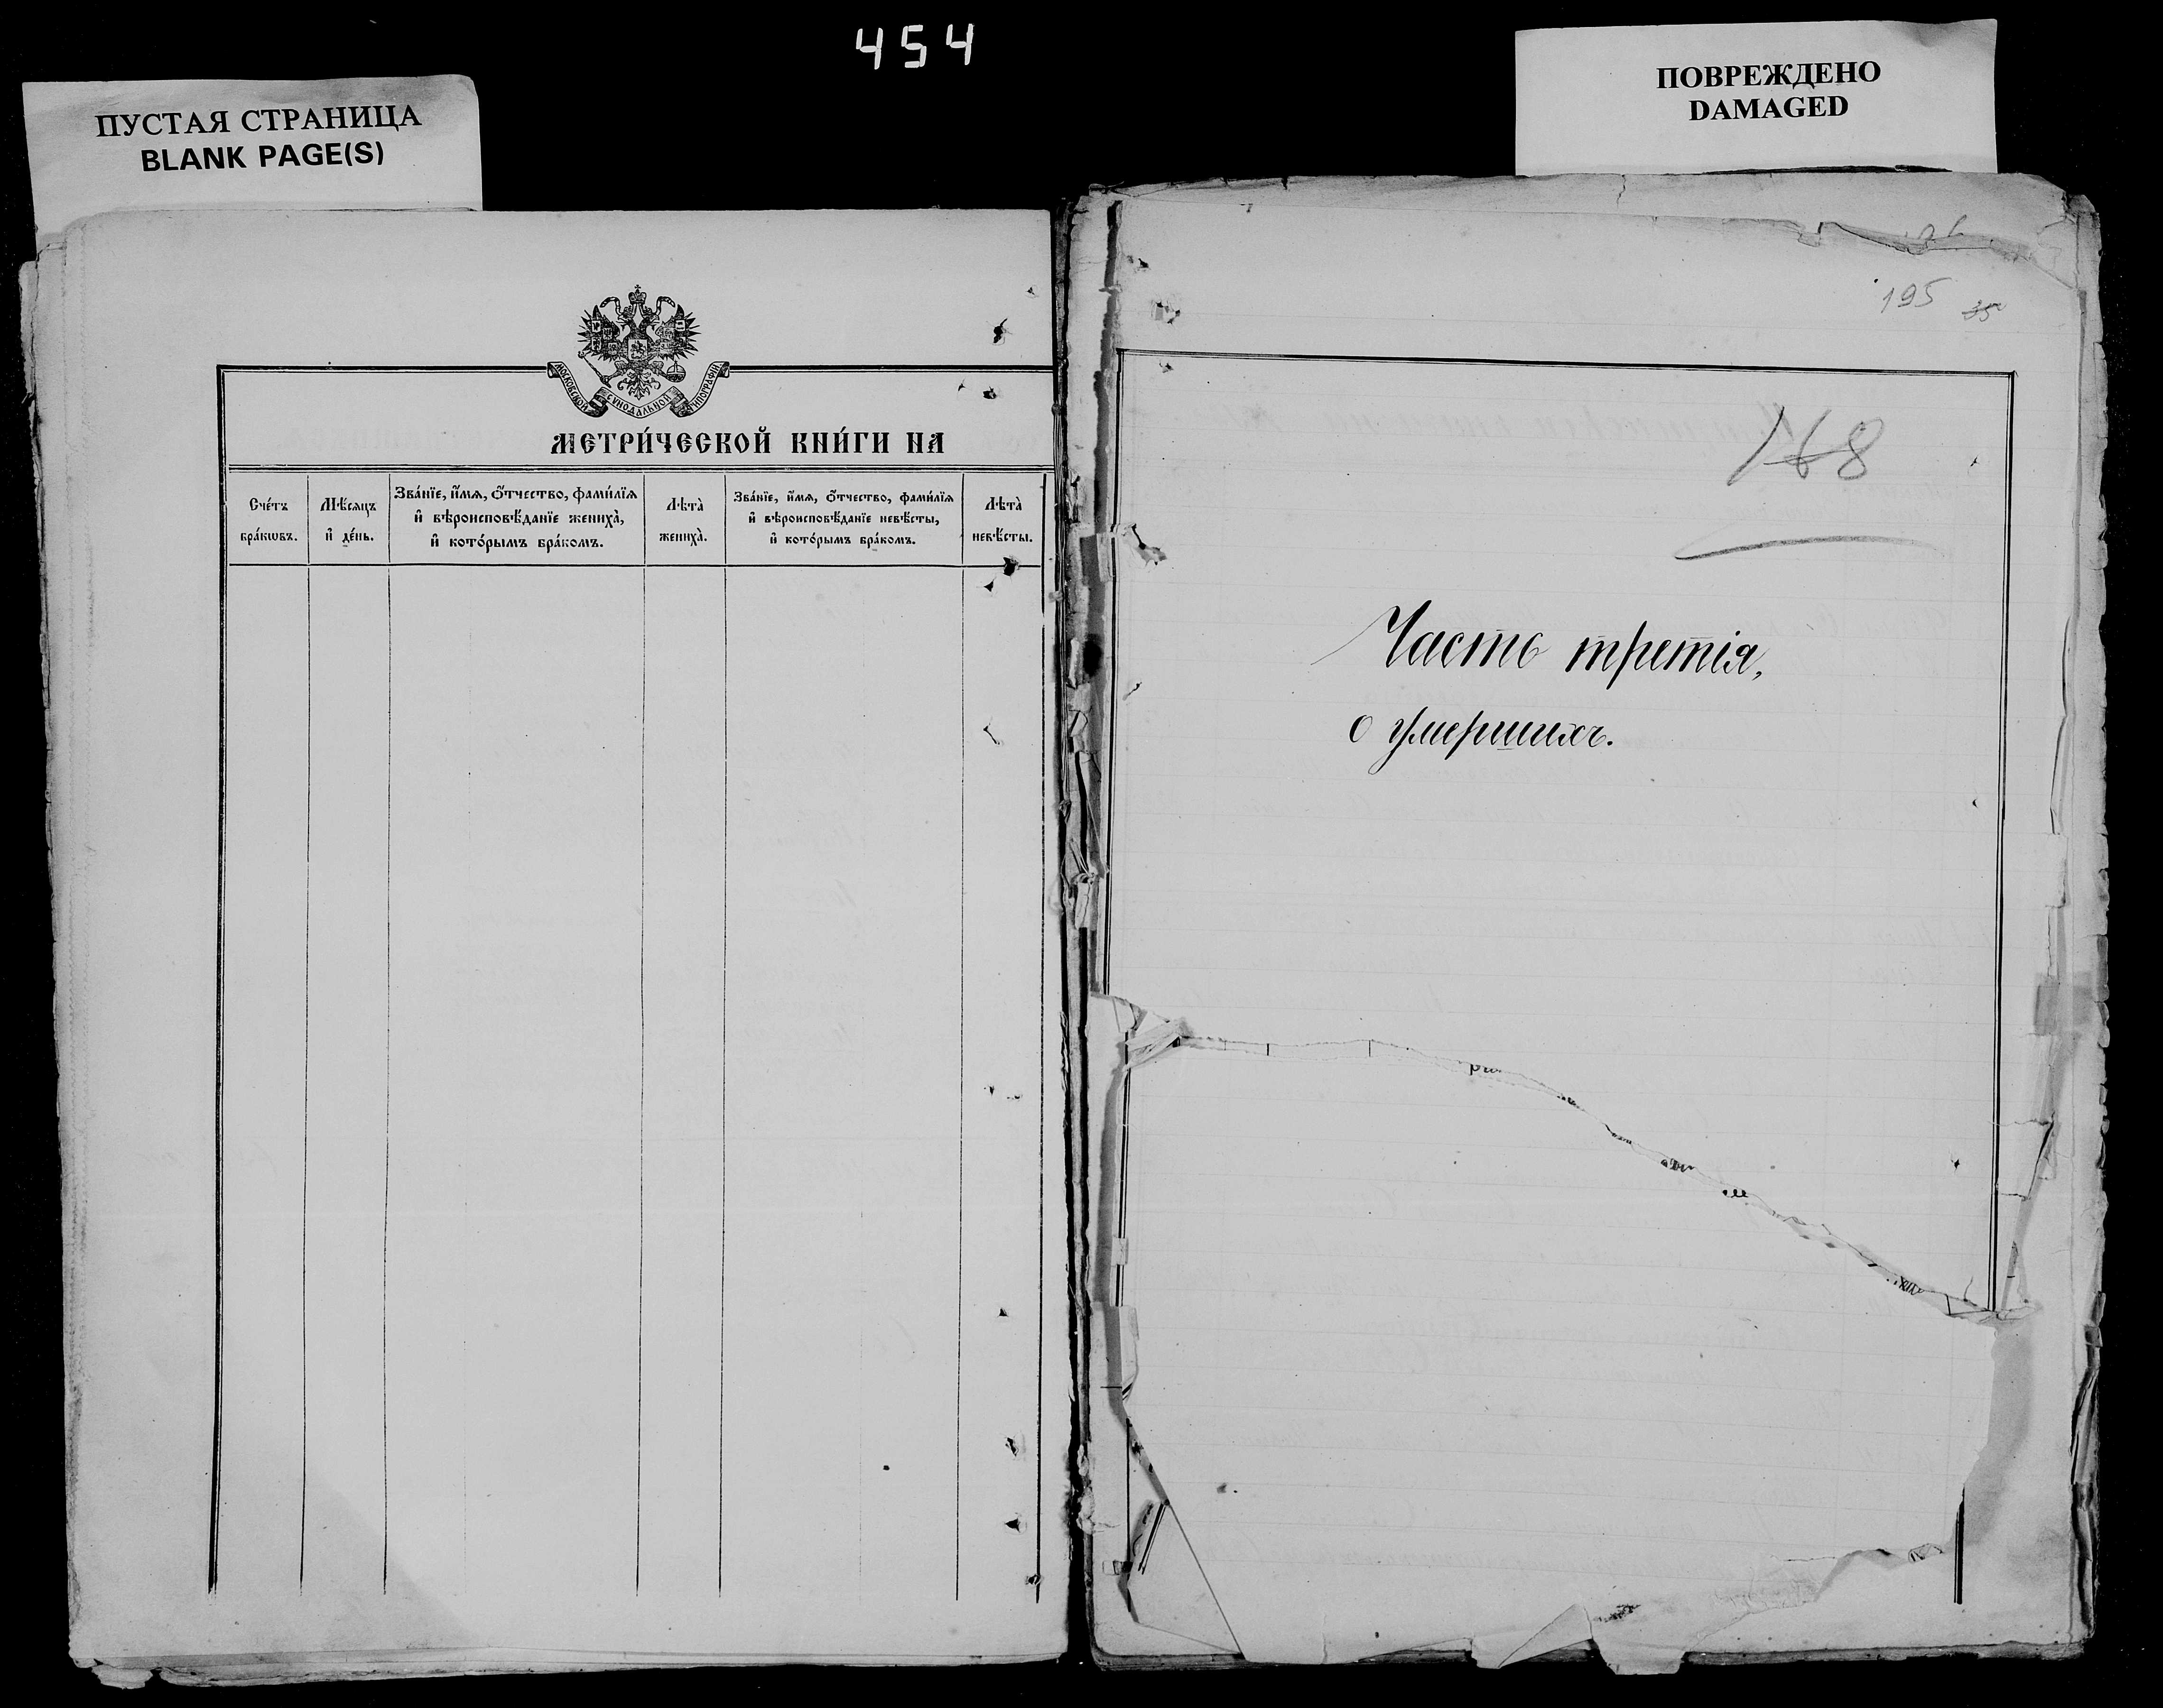 454
ПУСТАЯ СТРАНИЦА
BLANK PAGE(S)
ПОВРЕЖДЕНО
DAMAGED
МОСКОВСКОЙ СѴНОДАЛЬНОЙ ТИПОГРАФІИ
МЕТРИ́ЧЕСКОЙ КНИ́ГИ НА
Сче́тъ
бра́кѡвъ.
Мѣ́сѧцъ
и҆ де́нь.
Зва́нїе, и҆́мѧ, ѻ҆́тчество, фами́лїѧ
и҆ вѣроисповѣ́данїе жениха̀,
и҆ кото́рымъ бра́комъ.
Лѣта̀
жениха̀.
Зва́нїе, и҆́мѧ, ѻ҆́тчество, фами́лїѧ
и҆ вѣроисповѣ́данїе невѣ́сты,
и҆ кото́рымъ бра́комъ.
Лѣта̀
невѣ́сты.
195 35
168
Часть третія,
о умершихъ.